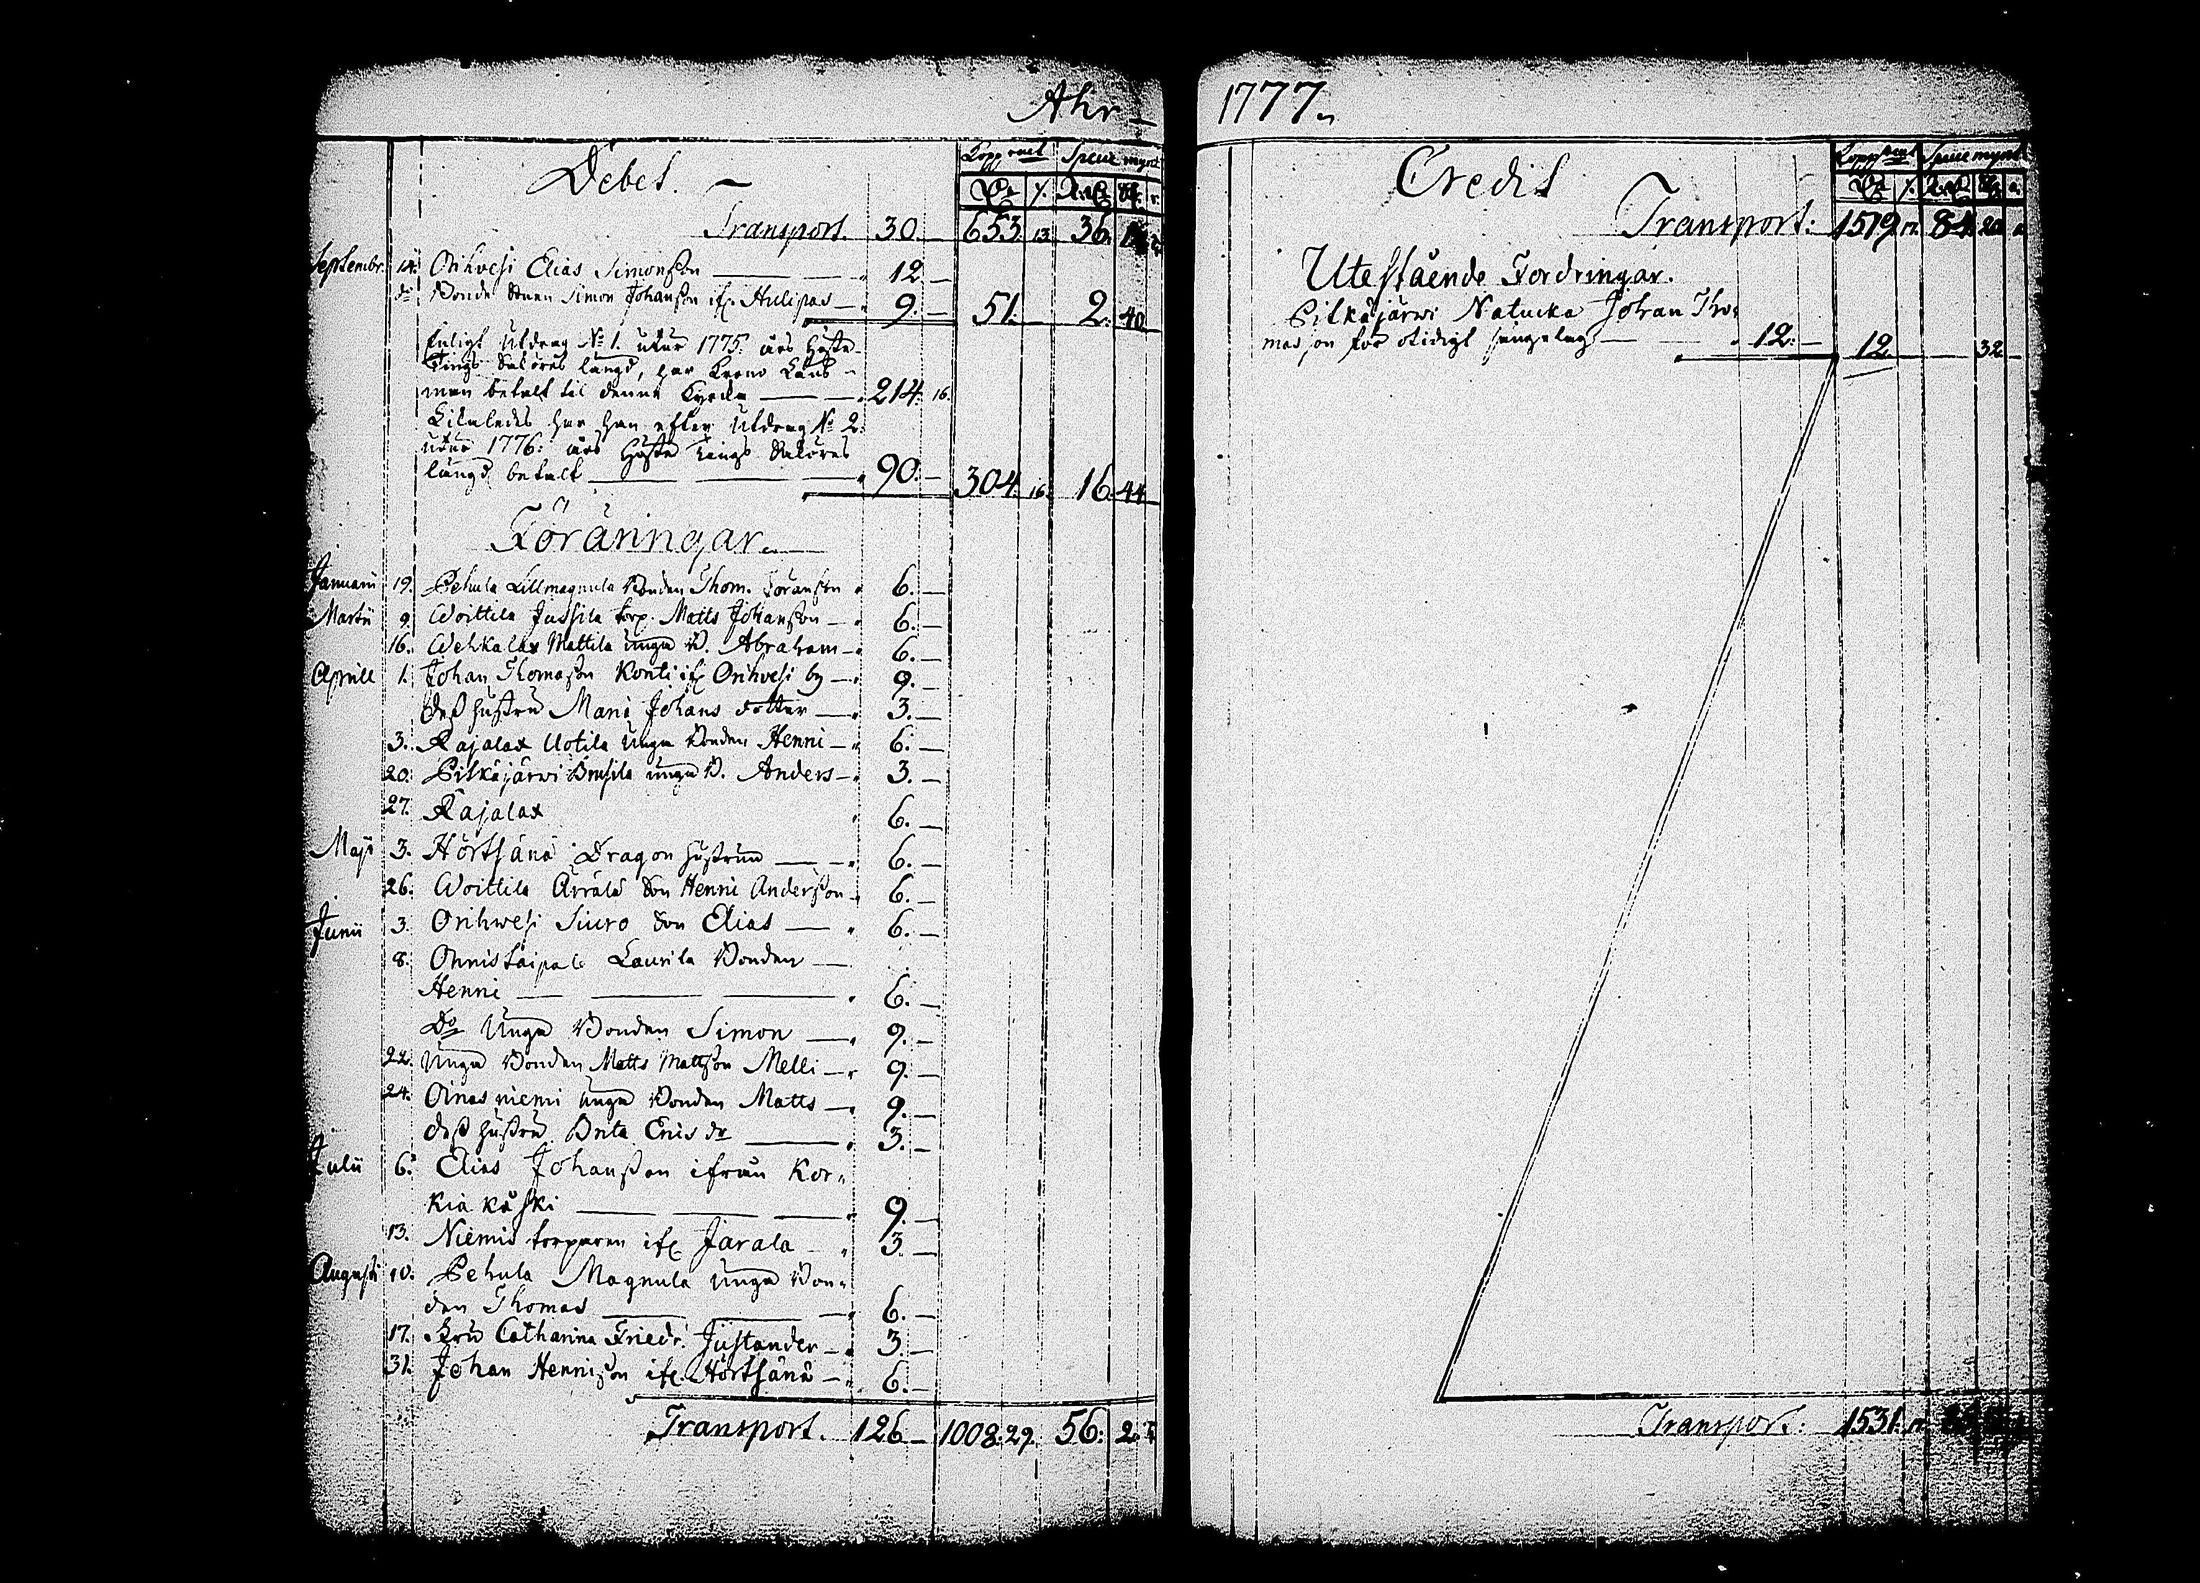 Åhr 1777.
Debet.
Kopp mt Specie mynt
Transport. 30. — 653. 13. 36.
Septembr. 14. Orihvesi Elias Simonsson — 12 —
do Bonde Sonen Simon Johansson ifr. Hulipas — 9. — 51. — 2. 40
Enligt Utdrag No 1. utur 1775. års Höste
Tings Saköres längd, har Krono Läns
man betalt til denna Kyrcka — 214. 16.
Likaledes har han efter Utdrag No 2.
utur 1776. års Höste Tings Saköres
längd betalt — 90. — 304. 16. 16. 44
Föräningar
Januarii 19. Pehula Lillmagnula Bonden Thom. Göransson 6. —
Martii 9. Woittila Jussila torp. Matts Johansson — 6. —
16. Wehkalax Mattila unga B. Abraham — 6. —
Aprill 1. Johan Thomasson Konti ifr Orihvesi by — 9. —
dess hustru Maria Johans dotter — 3. —
3. Rajalax Uotila Unga Bonden Henric — 6. —
20. Pitkäjärwi unga B. Anders — 3. —
27. Rajalax 6. —
Maji 3. Hörtsänä Dragon hustrun — 6. —
26. Woittila Ärrälä Son Henric Andersson — 6. —
Junii 3. Orihwesi Siuro Son Elias — 6. —
8. Onnistaipale Laurila Bonden —
Henric — 6. —
Do Unga Bonden Simon — 9. —
22. Unga Bonden Matts Mattsson Melli — 9. —
24. Oinasniemi unga Bonden Matts — 9. —
dess hustru Brita Erics dr — 3. —
Julii 6. Elias Johansson ifrån Kor-
kia käski — 9. —
13. Niemis torparen ifr Jarala — 3. —
Augusti 10. Pehula Magnula unga Bon-
den Thomas — 6. —
17. Fru Catharina Friedr. Justander — 3. —
31. Johan Henricsson ifr. Hörtsänä — 6. —
Transport. 126 — 1008. 29. 56. 2.
Credit
Kopp mt Specie mynt
Transport: 1519. 17. 84. 20
Utestående Fordringar.
Pitkäjärwi Natucka Johan Tho-
masson för otidigt sängelag — 12. — 12. 32 —
Transport: 1531. 17.